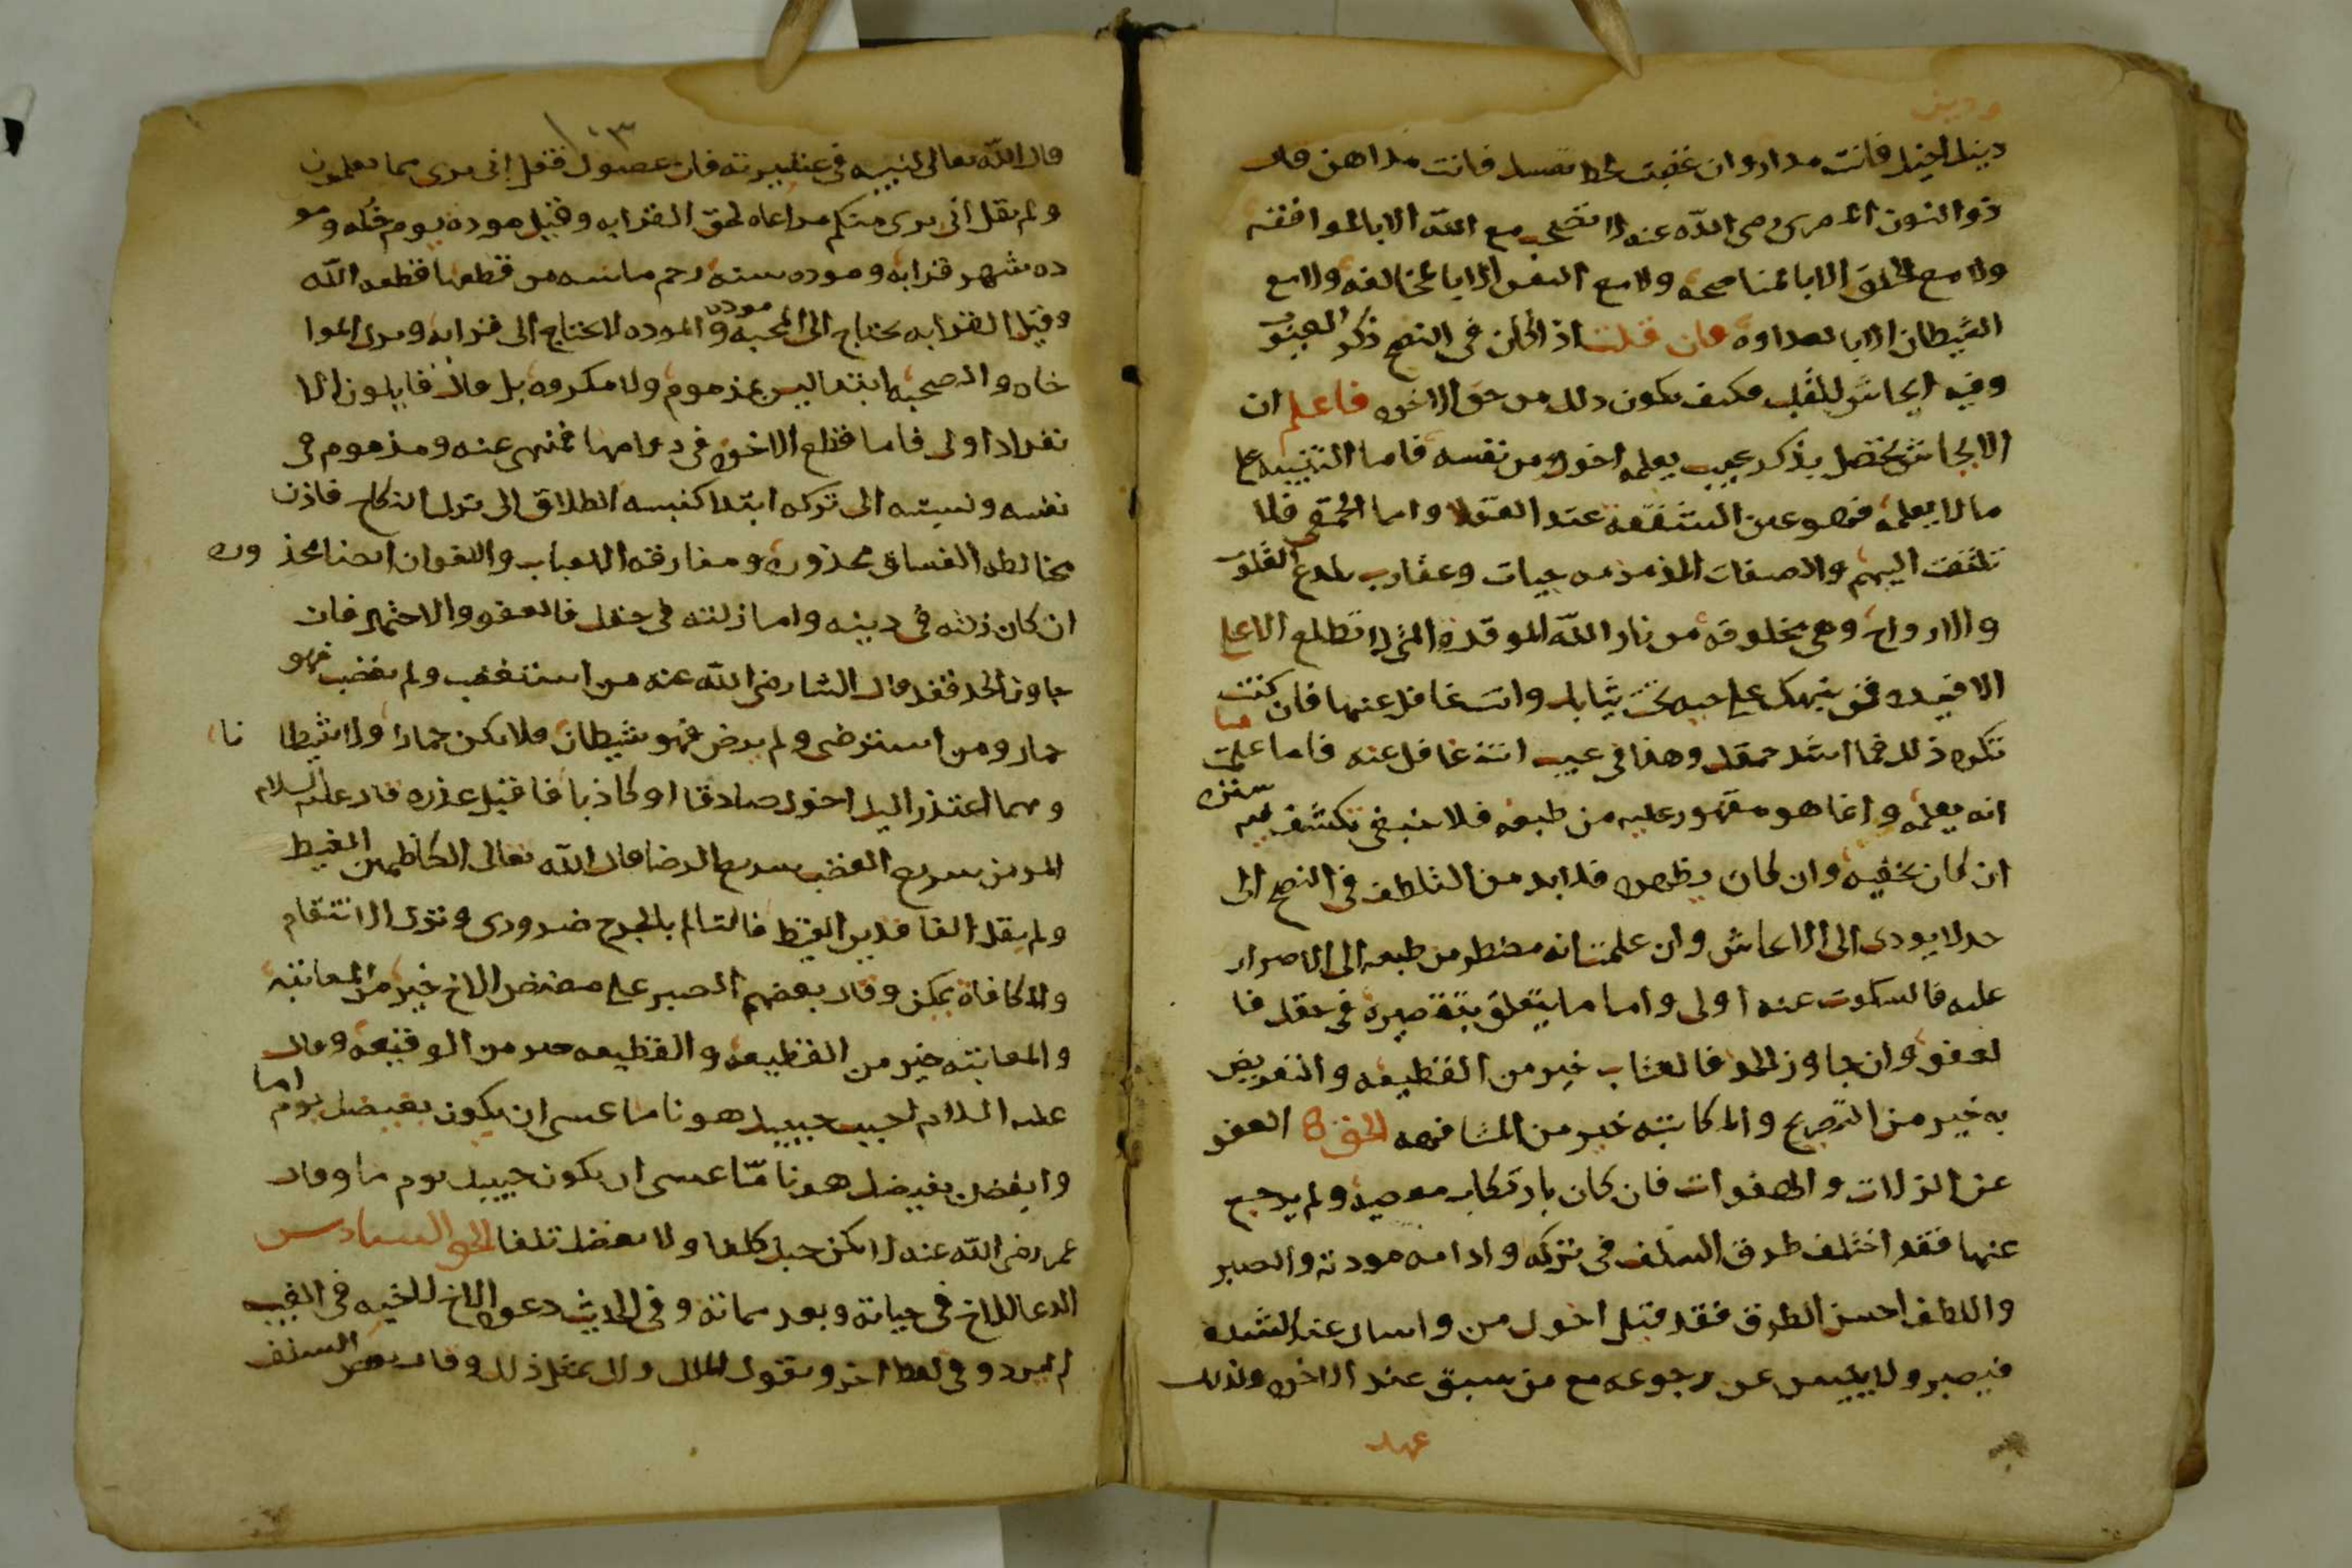 ودين
دينك اخيك فانت مدار وان غضيت لحظ نفسك فانت مداهن قال
ذو النون المصري رضي الله عنه لا تصحب مع الله الا بالموافقه
ولا مع الخلق الا بالمناصحه ولا مع النفس الا بالمخالفه ولا مع
الشيطان الا بالعداوه فان قلت اذا كان في النصح ذكر العيوب
وفيه ايحاش للقلب فكيف يكون ذلك من حق الاخوه فاعلم ان
الايحاش يحصل بذكر عيب يعلمه اخوك من نفسه فاما التنبيه على
ما لا يعلمه فهو عين الشفقه عند العقلا واما الحمقى فلا
تلتفت اليهم والصفات المذمومه حيات وعقارب تلدغ القلوب
والارواح وهي مخلوقه من نار الله الموقده التي لا تطلع الا على
الافيده فمن ينبهك على حيه تحت ثيابك وانت غافل عنها فان كنت
تكره ذلك فما اشد حمقك وهذا في عيب انت غافل عنه فاما علمت
انه يعلمه وانما هو مقهور عليه من طبعه فلا ينبغي تكشف فيه ستره
ان كان يخفيه وان كان يظهره فلا بد من التلطف في النصح الى
حد لا يودى الى الايحاش وان علمت انه مضطر من طبعه الى الاصرار
عليه فالسكوت عنه اولى واما ما يتعلق بتقصيره في حقك فا
لعفو وان جاوز الحد فالعتاب خير من القطيعه والتعريض
به خير من التصريح والمكاتبه خير من المشافهه الحق العفو
عن الزلات والهفوات فان كان بارتكاب معصيه ولم يرجع
عنها فقد اختلف طرق السلف في تركه وادامه مودته والصبر
واللطف احسن الطرق فقد قيل اخوك من واساك عند الشده
فيصبر ولا ييئس عن رجوعه مع من سبق عند الاخوه ولذلك
عهد
قال الله تعالى لنبيه في عشيرته فان عصوك فقل اني برى مما تعملون
ولم يقل اني برى منكم مراعاه لحق القرابه وقيل موده يوم خله ومو
ده شهر قرابه وموده سنه رحم ماسه من قطعها قطعه الله
وقيل القرابه تحتاج الى المحبه والموده لا تحتاج الى قرابه وترى الموا
خاه والصحبه ابتدا ليس بمذموم ولا مكروه بل قال قايلون الا
نفراد اولى فاما قطع الاخوه في دوامها فمنهى عنه ومذموم في
نفسه ونسبته الى تركه ابتدا كنسبه الطلاق الى ترك النكاح فاذن
مخالطه الفساق محذوره ومفارقه الاحباب والاخوان ايضا محذ وره
ان كان زلته في دينه واما زلته في حقك فالعفو والاحتمال فان
جاوز الحد فقد قال الشافعي رضى الله عنه من استغضب ولم يغضب فهو
حمار ومن استرضى ولم يرض فهو شيطان فلا تكن حمارا ولا شيطا نا
ومهما اعتذر اليك اخوك صادقا او كاذبا فاقبل عذره قال عليه السلام
المومن سريع الغضب سريع الرضا قال الله تعالى الكاظمين الغيظ
ولم يقل الفاقدين الغيظ فالتالم بالجرح ضرورى وترك الانتقام
والمكافاه يمكن وقال بعضهم الصبر على مضض الاخ خير من المعاتبه
والمعاتبه خير من القطيعه والقطيعه خير من الوقيعه وقال
عليه السلام احبب حبيبك هونا ما عسى ان يكون بغيضك يوما ما
وابغض بغيضك هونا ما عسى ان يكون حبيبك يوم ما وقال
عمر رضى الله عنه لا يكن حبك كلفا ولا بغضك تلفا الحق السادس
الدعا للاخ في حياته وبعد مماته وفي الحديث دعوه الاخ لاخيه في الغيب
لم ترد وفي لفظ اخر ويقول الملك ولك بمثل ذلك وقال بعض السلف